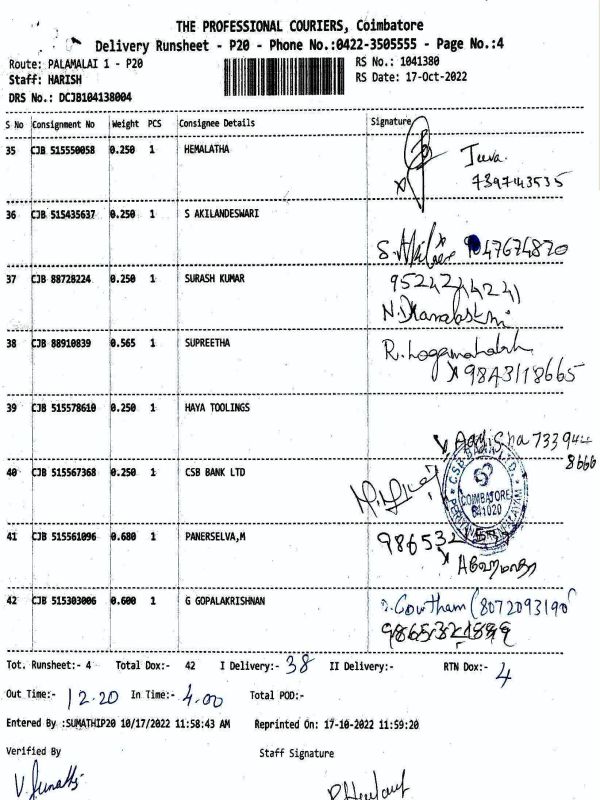 THE PROFESSIONAL COURIERS, Coimbatore
Delivery Runsheet - P20 - Phone No.:0422-3505555 - Page No.:4
Route: PALAMALAI 1 - P20 RS No.: 1041380
Staff: HARISH RS Date: 17-Oct-2022
DRS No.: DCJB104138004
S No Consignment No Weight PCS Consignee Details Signature
35 CJB 515550058 0.250 1 HEMALATHA
Jeeva.
7397143535
36 CJB 515435637 0.250 1 S AKILANDESWARI
S. 9047674870
37 CJB 88728224 0.250 1 SURASH KUMAR
N.
38 CJB 88910839 0.565 1 SUPREETHA
R.
9843118665
39 CJB 515578610 0.250 1 HAYA TOOLINGS
733944
8666
40 CJB 515567368 0.250 1 CSB BANK LTD
CSB BANK LTD.
COIMBATORE
641020
41 CJB 515561096 0.680 1 PANERSELVA,M
42 CJB 515303006 0.600 1 G GOPALAKRISHNAN
Gowtham (8072093190
Tot. Runsheet:- 4 Total Dox:- 42 I Delivery:- 38 II Delivery:- RTN Dox:- 4
Out Time:- 12.20 In Time:- 4.00 Total POD:-
Entered By :SUMATHIP20 10/17/2022 11:58:43 AM Reprinted On: 17-10-2022 11:59:20
Verified By Staff Signature